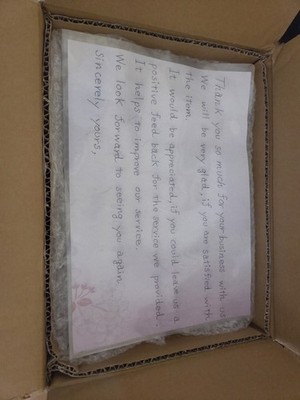 Thank you so much for your business with us.
We will be very glad, if you are satisfied with
the item.
It would be appreciated, if you could leave us a
positive feed back for the service we provided.
It helps to improve our service.
We look forward to seeing you again.
Sincerely yours,